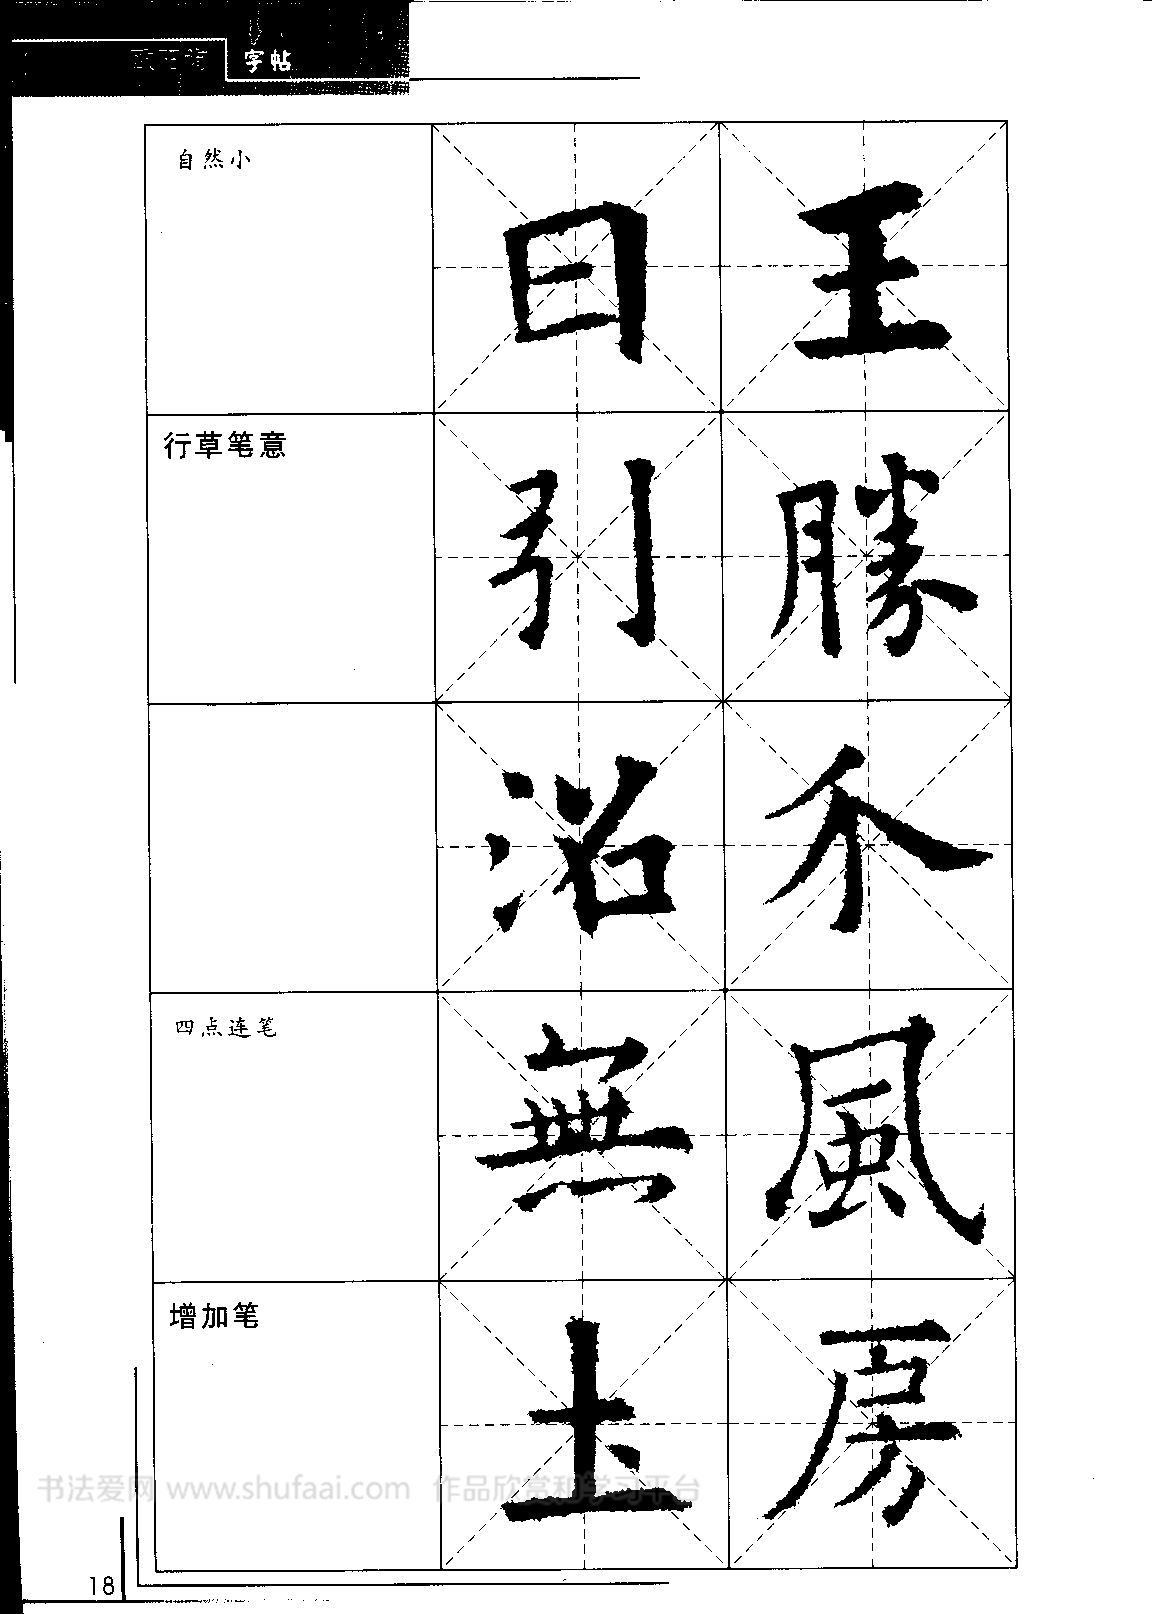 字帖
自然小
日 王
行草笔意
引 勝
四点连笔
無 風
增加笔
圡 房
书法爱网 www.shufaai.com 作品欣赏和学习平台
18